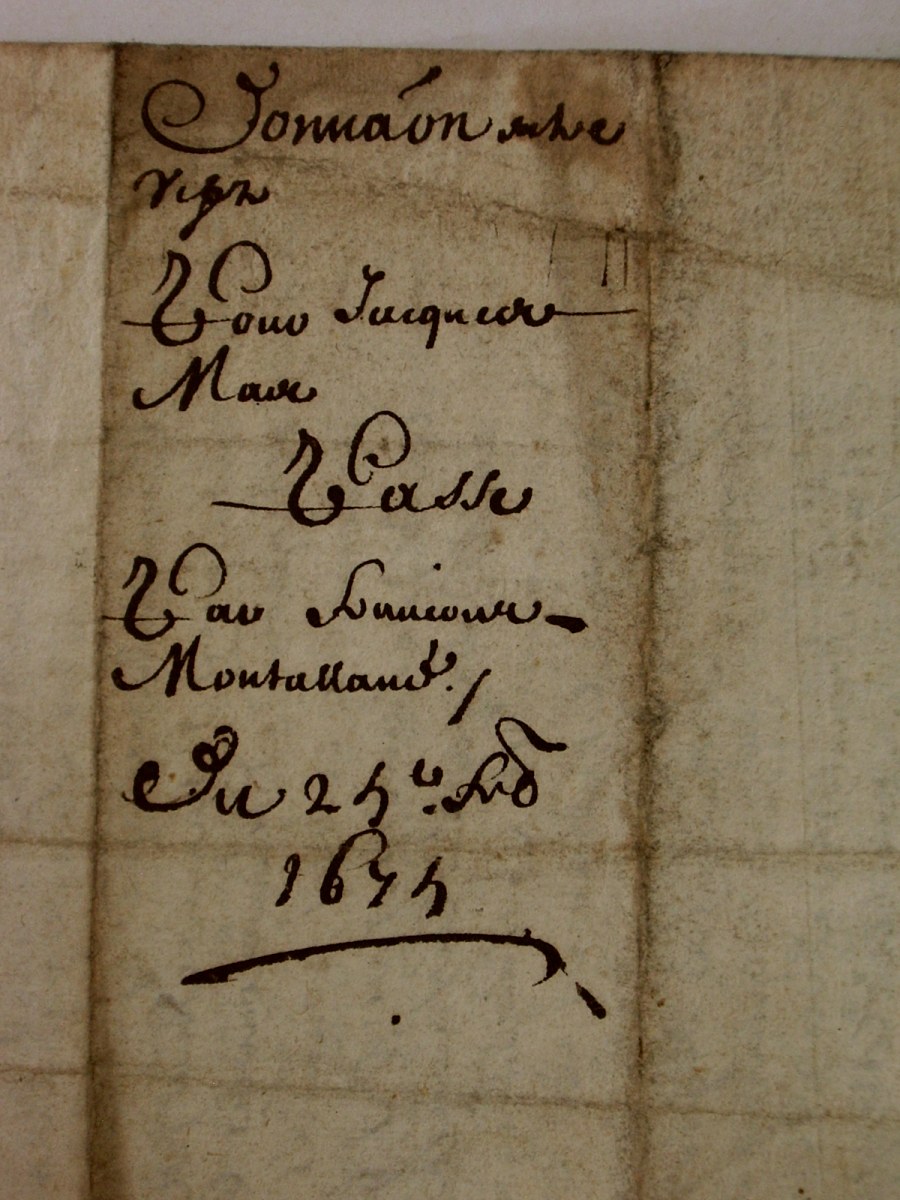 Donnaon entre
vifz
Pour Jacques
Mas
Passé
Par Francois
Montalland /
Du 25e feb
1675